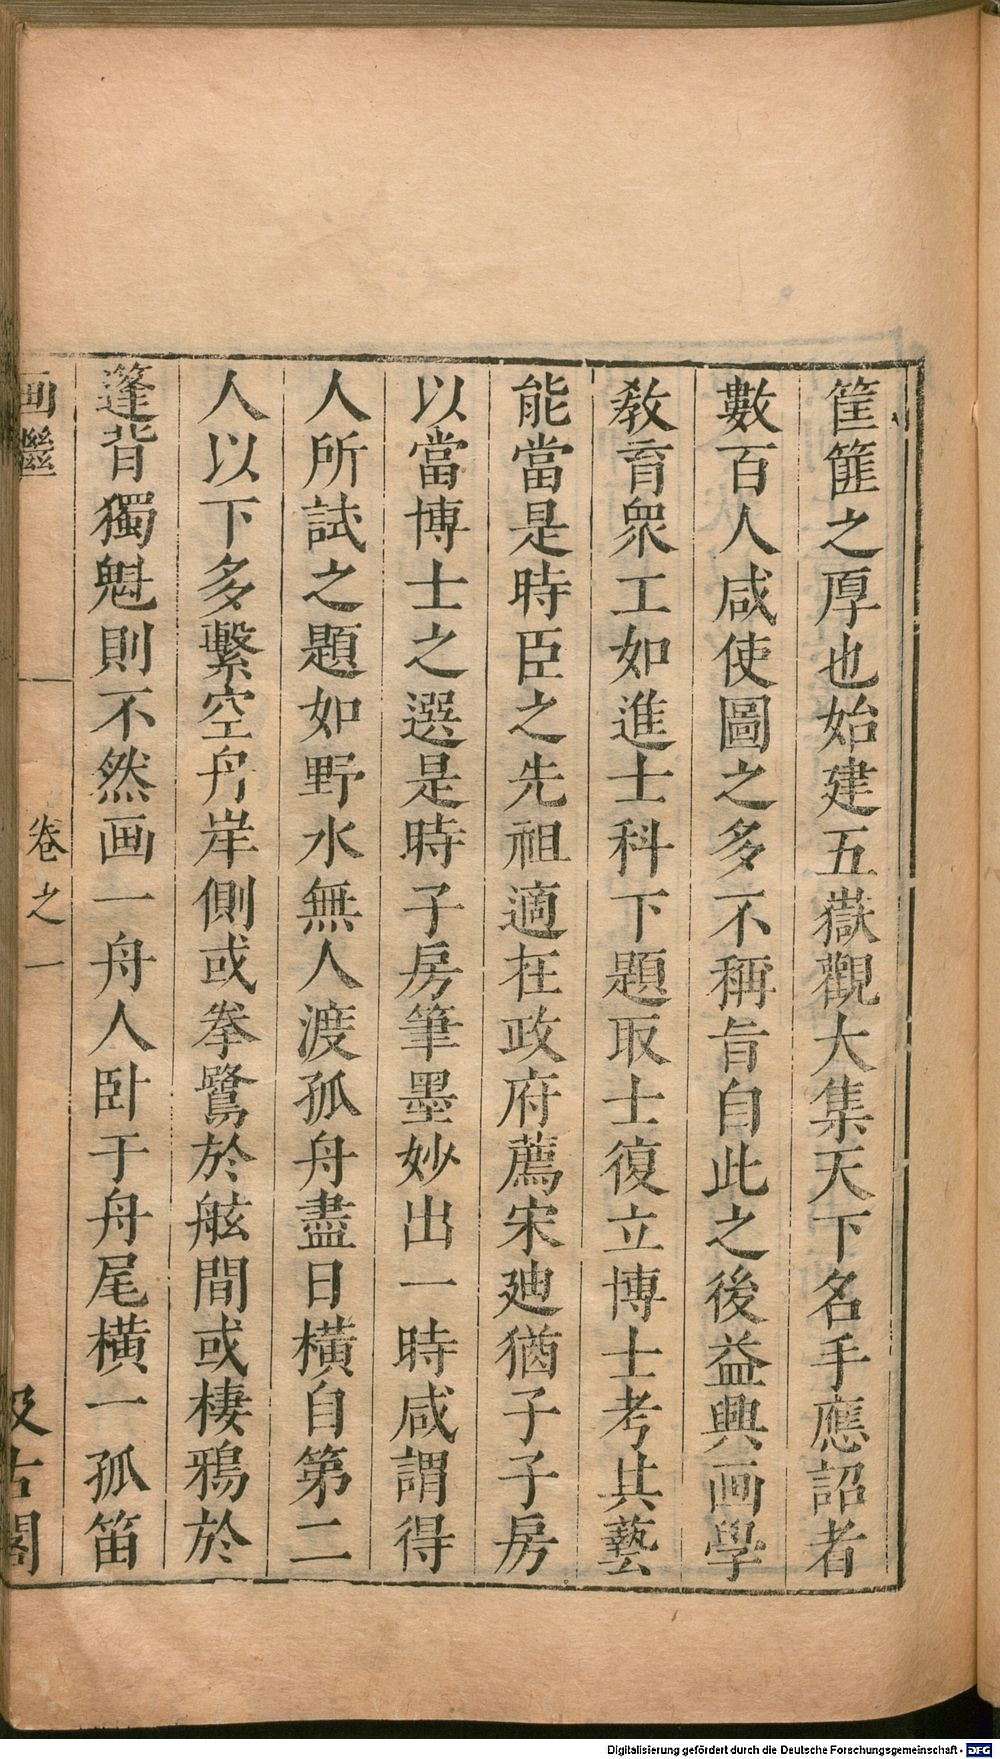 筐篚之厚也始建五嶽觀大集天下名手應詔者
數百人咸使圖之多不稱旨自此之後益興画學
教育衆工如進士科下題取士復立博士考其藝
能當是時臣之先祖適在政府薦宋迪猶子子房
以當博士之選是時子房筆墨妙出一時咸謂得
人所試之題如野水無人渡孤舟盡日橫自第二
人以下多繫空舟岸側或拳鷺於舷間或棲鴉於
篷背獨魁則不然画一舟人卧于舟尾橫一孤笛
画繼 卷之一 汲古閣
Digitalisierung gefördert durch die Deutsche Forschungsgemeinschaft - DFG